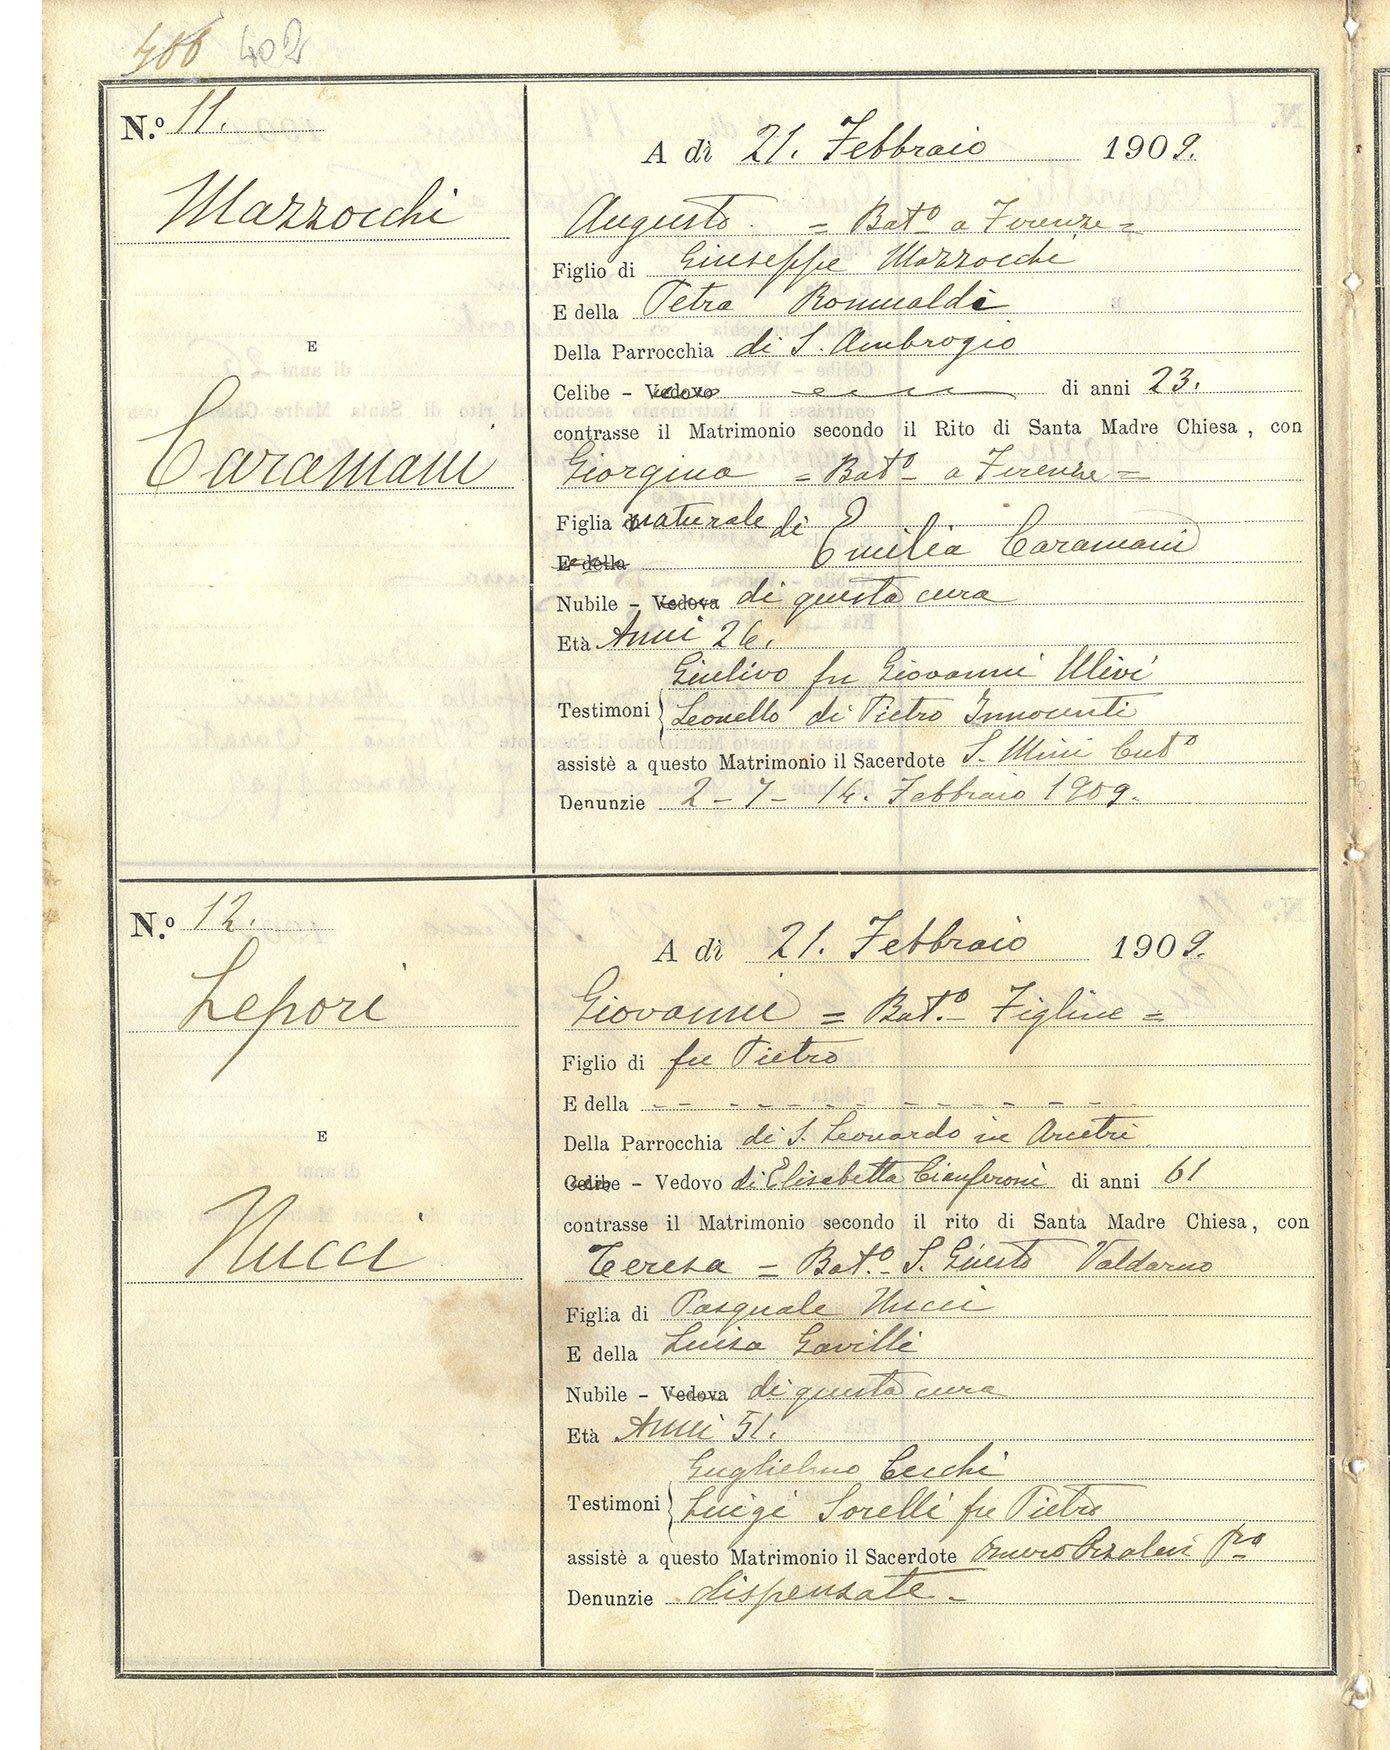 406 402
N.º 11.
Mazzocchi
E
Caramani
A dì 21. Febbraio 1909.
Augusto = Batº a Firenze =
Figlio di Giuseppe Mazzocchi
E della Petra Romualdi
Della Parrocchia di S. Ambrogio
Celibe - Vedovo di anni 23.
contrasse il Matrimonio secondo il Rito di Santa Madre Chiesa, con
Giorgina = Batº a Firenze =
Figlia naturale di Emilia Caramani
E della
Nubile - Vedova di questa cura
Età Anni 26.
Giulivo fu Giovanni Ulivi
Testimoni Leonello di Pietro Innocenti
assistè a questo Matrimonio il Sacerdote S. Mini Curº
Denunzie 2 - 7 - 14. Febbraio 1909.
N.º 12.
Lepori
E
Nucci
A dì 21. Febbraio 1909.
Giovanni = Bat.º Figline =
Figlio di fu Pietro
E della - - - - - - - - - - - -
Della Parrocchia di S. Leonardo in Arcetri
Celibe - Vedovo di Elisabetta Cianferoni di anni 61
contrasse il Matrimonio secondo il rito di Santa Madre Chiesa, con
Teresa = Bat.º S. Giusto Valdarno
Figlia di Pasquale Nucci
E della Luisa Gavilli
Nubile - Vedova di questa cura
Età Anni 51.
Guglielmo Cecchi
Testimoni Luigi Sorelli fu Pietro
assistè a questo Matrimonio il Sacerdote
Denunzie dispensate. -